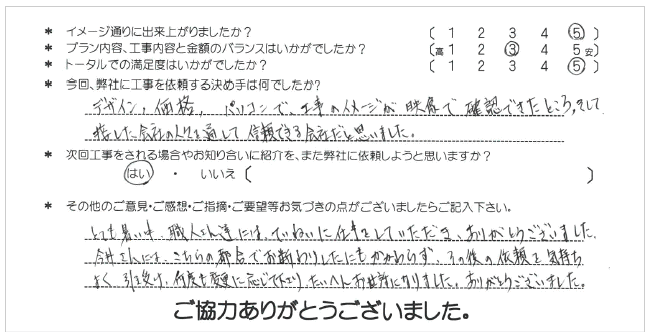 * イメージ通りに出来上がりましたか? ( 1 2 3 4 5 )
* プラン内容、工事内容と金額のバランスはいかがでしたか? (高 1 2 3 4 5 安)
* トータルでの満足度はいかがでしたか? ( 1 2 3 4 5 )
* 今回、弊社に工事を依頼する決め手は何でしたか?
デザイン, 価格, パソコンで、工事のイメージが映像で確認できたところ。そして
接した会社の人々を通して信頼できる会社だと思いました。
* 次回工事をされる場合やお知り合いに紹介を、また弊社に依頼しようと思いますか?
はい ・ いいえ ( )
* その他のご意見・ご感想・ご指摘・ご要望等お気づきの点がございましたらご記入下さい。
とても暑い中、職人さん達には、ていねいに仕事をしていただき、ありがとうございました。
今井さんには、こちらの都合でお断わりしたにもかかわらず、その後の依頼を気持ち
よく引き受け、何度も変更に応じて下さり、たいへんお世話になりました。ありがとうございました。
ご協力ありがとうございました。